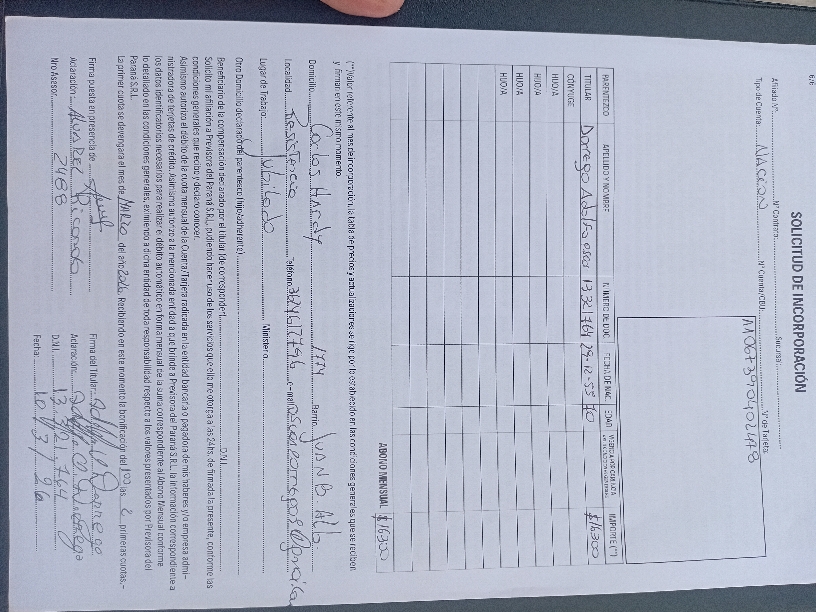 6/6
SOLICITUD DE INCORPORACIÓN
Afiliado Nº: Nº Contrato: Sucursal:
Tipo de Cuenta: NACION Nº Cuenta/CBU: Nº de Tarjeta:
PARENTEZCO APELLIDO Y NOMBRE NUMERO DE DOC. FECHA DE NAC. EDAD IMPORTE (*)
TITULAR 13321764 29-12-55 70 $16300
CÓNYUGE
HIJO/A
HIJO/A
HIJO/A
HIJO/A
HIJO/A
ABONO MENSUAL $16300
(**) Valor referente al mes de incorporación. La tabla de precios y actualizaciones se rige por lo establecido en las condiciones generales que se reciben
y firman en este mismo momento
Domicilio: Carlos Hardy 1774 Barrio: JUAN B. Alb
Localidad: Resistencia Teléfono: 3624617796 e-mail:
Lugar de Trabajo: Jubilado Ministerio:
Otro Domicilio declarado del parentesco (hijo/adherente):
Beneficiario de la compensación declarado por el titular (de corresponder): D.N.I.
Solicito mi afiliación a Previsora del Paraná S.R.L., pudiendo hacer uso de los servicios que ella me otorga a las 24hs. de firmada la presente, conforme las
condiciones generales que recibo y declaro conocer.
Asimismo autorizo el débito de la cuota mensual de la Cuenta/Tarjeta radicada en la entidad bancaria o pagadora de mis haberes y/o empresa admi-
nistradora de tarjetas de crédito. Asimismo autorizo a la mencionada entidad a que brinde a Previsora del Paraná S.R.L. la información correspondiente a
los datos identificatorios necesarios para realizar el débito automático en forma mensual de la suma correspondiente al Abono Mensual conforme
lo detallado en las condiciones generales, eximiendo a dicha entidad de toda responsabilidad respecto a los valores presentados por Previsora del
Paraná S.R.L.
La primer cuota se devengará el mes de MARZO del año 2026 Recibiendo en este momento la bonificación del 100 a las 2 primeras cuotas.-
Firma puesta en presencia de Firma del Titular:
Aclaración: ALVAREZ Ricardo Aclaración:
Nro Asesor: 2488 D.N.I.
Fecha: